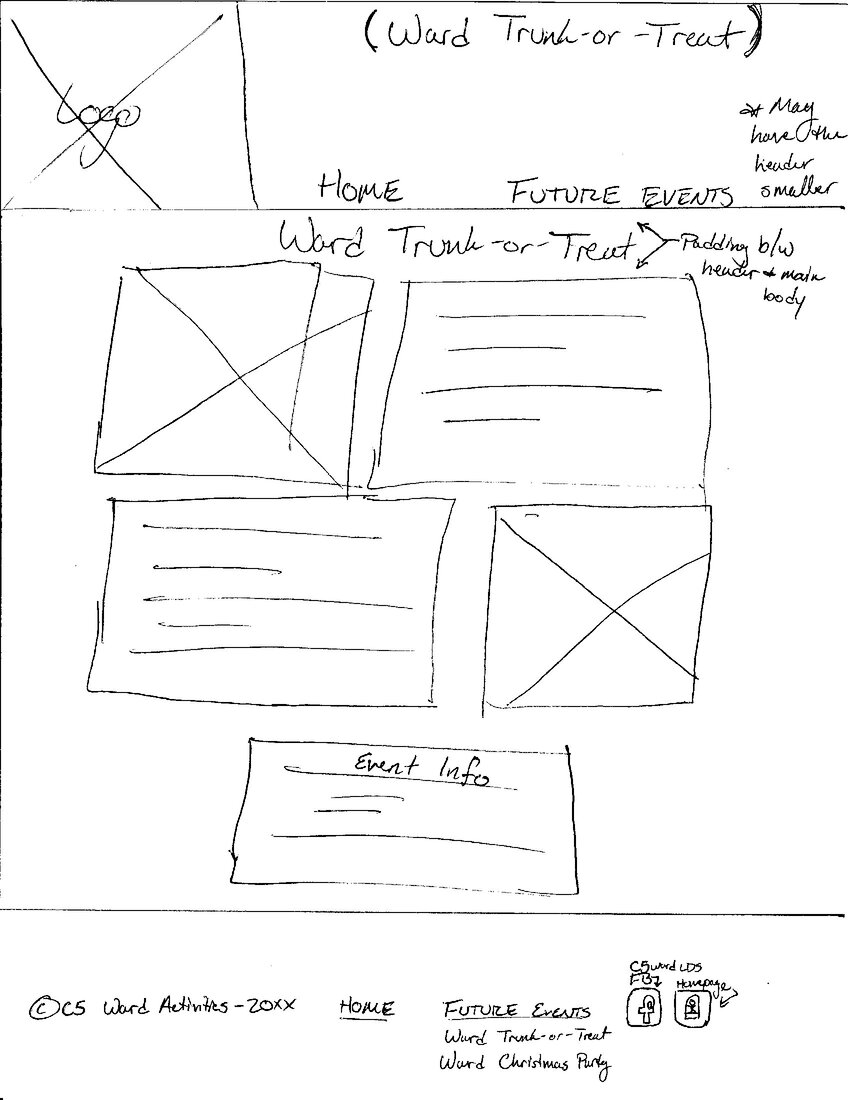 (Ward Trunk-or-Treat)
Logo
* May
have the
header
smaller
HOME
FUTURE EVENTS
Ward Trunk-or-Treat
Padding b/w
header & main
body
Event Info
© C5 Ward Activities - 20XX
HOME
FUTURE EVENTS
Ward Trunk-or-Treat
Ward Christmas Party
C5 Ward
FB
LDS
Homepage